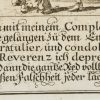 mit meinem Compl
gelangen zu dem Ein
gratulier, und condol
Reverenz ich depre
dann die gantze Red voll
sten Falschheit jeder lau